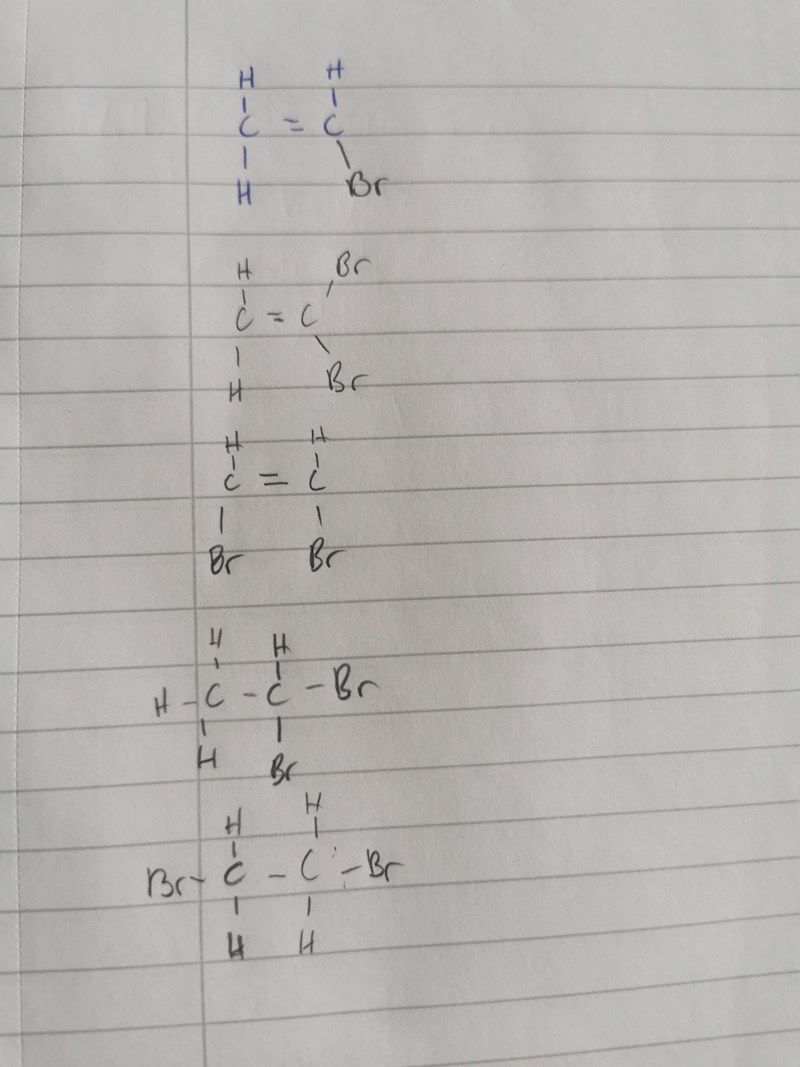 H H
| |
C = C
| \
H Br
H Br
| /
C = C
| \
H Br
H H
| |
C = C
| |
Br Br
H H
| |
H - C - C - Br
| |
H Br
H H
| |
Br - C - C - Br
| |
H H